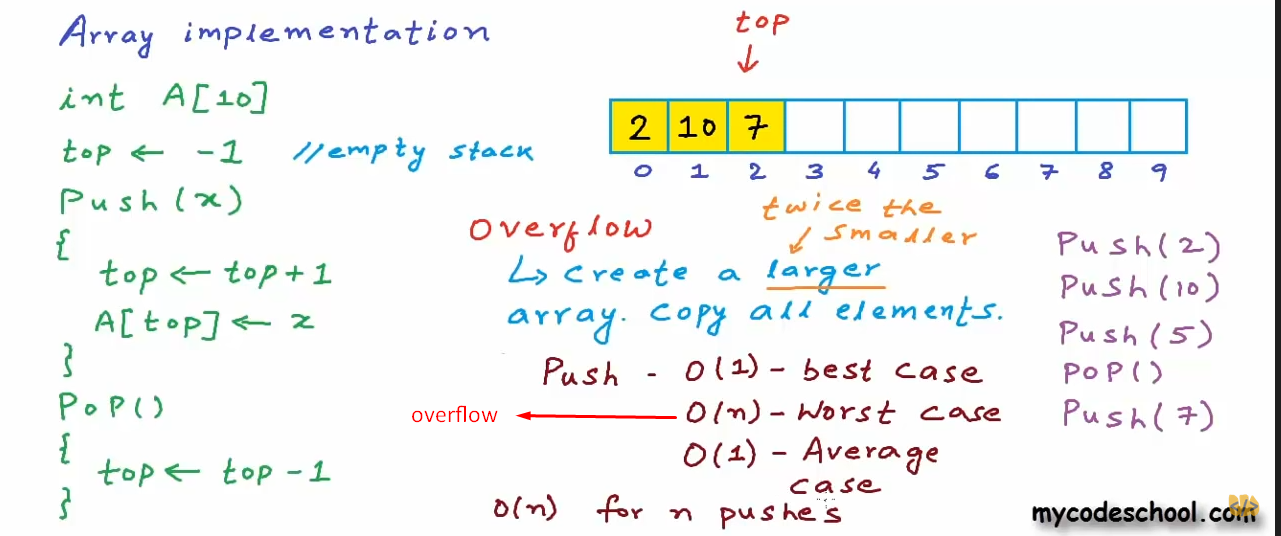 Array implementation
int A[10]
top ← -1 //empty stack
Push(x)
{
top ← top + 1
A[top] ← x
}
Pop()
{
top ← top - 1
}
top
↓
2 10 7
0 1 2 3 4 5 6 7 8 9
overflow
twice the
smaller
↳ create a larger
array. copy all elements.
Push - O(1) - best case
overflow ← O(n) - Worst case
O(1) - Average
case
O(n) for n pushes
Push(2)
Push(10)
Push(5)
POP()
Push(7)
mycodeschool.com